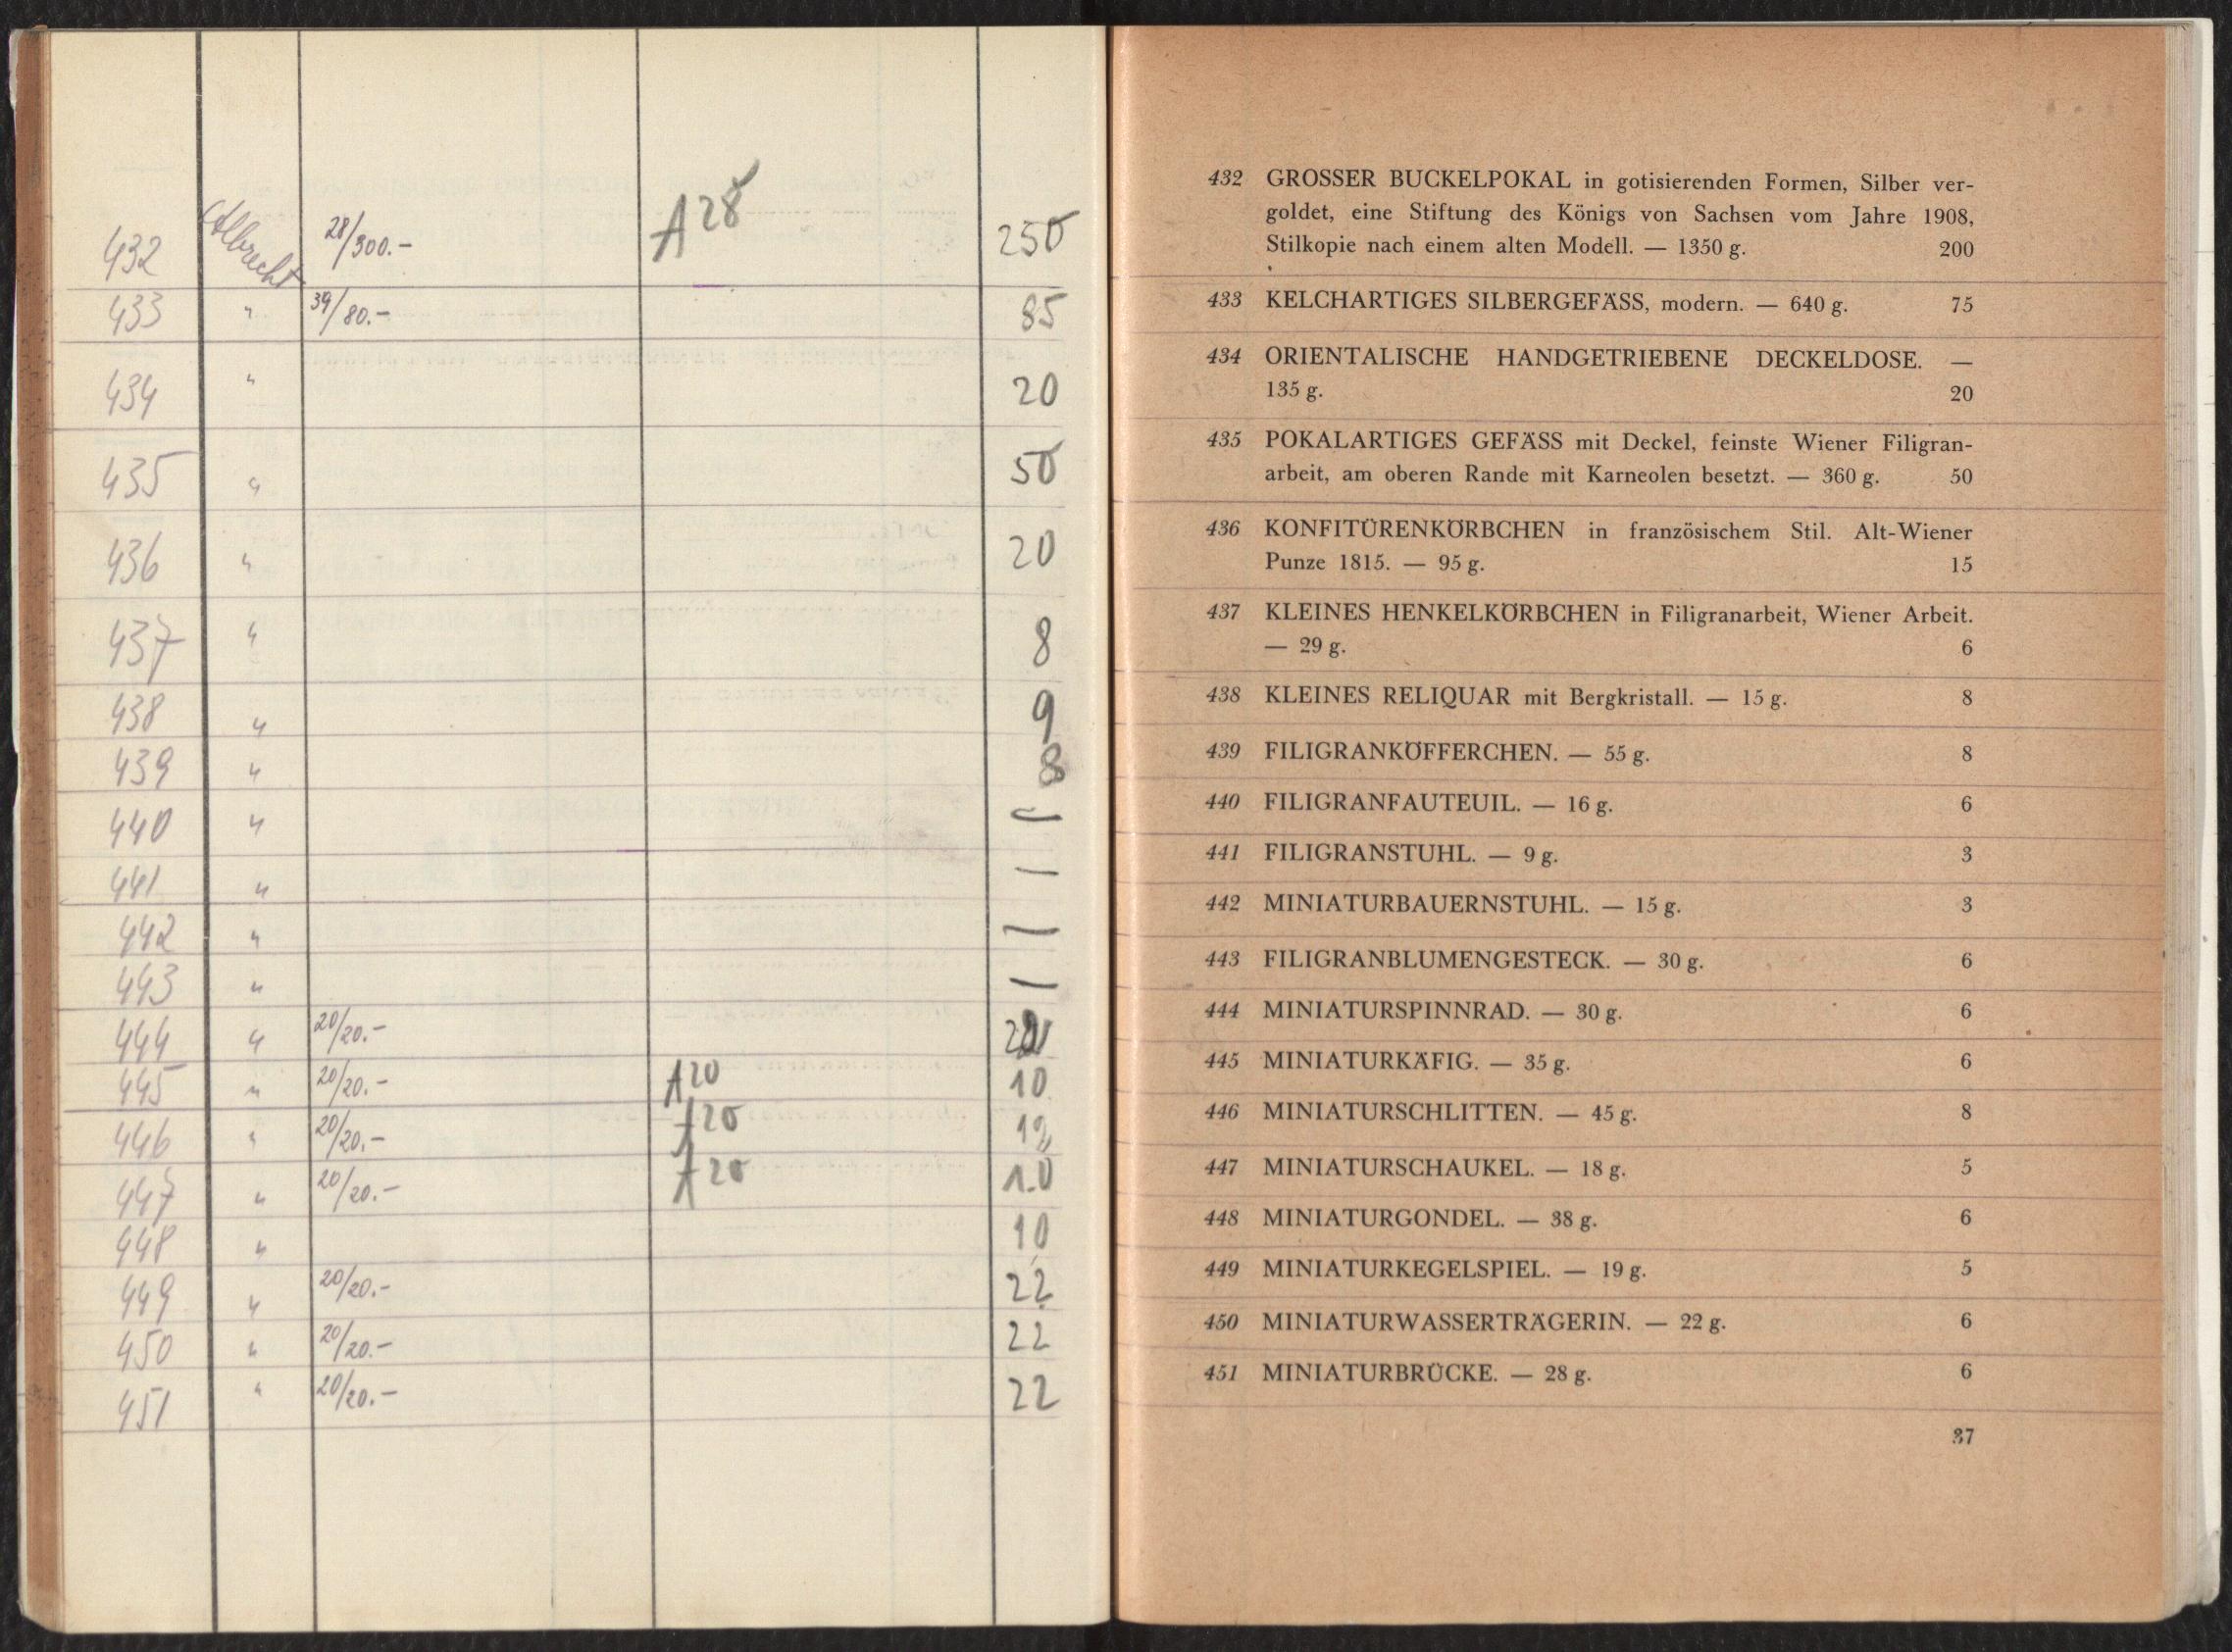 432 Albrecht 28/300.- A 28 250
433 " 39/80.- 85
434 " 20
435 " 50
436 " 20
437 " 8
438 " 9
439 " 8
440 " —
441 " —
442 " —
443 " —
444 " 20/20.-
445 " 20/20.- A 20 10
446 " 20/20.- A 20
447 " 20/20.- A 20 10
448 " 10
449 " 20/20.- 22
450 " 20/20.- 22
451 " 20/20.- 22
432 GROSSER BUCKELPOKAL in gotisierenden Formen, Silber ver-
goldet, eine Stiftung des Königs von Sachsen vom Jahre 1908,
Stilkopie nach einem alten Modell. — 1350 g. 200
433 KELCHARTIGES SILBERGEFÄSS, modern. — 640 g. 75
434 ORIENTALISCHE HANDGETRIEBENE DECKELDOSE. —
135 g. 20
435 POKALARTIGES GEFÄSS mit Deckel, feinste Wiener Filigran-
arbeit, am oberen Rande mit Karneolen besetzt. — 360 g. 50
436 KONFITÜRENKÖRBCHEN in französischem Stil. Alt-Wiener
Punze 1815. — 95 g. 15
437 KLEINES HENKELKÖRBCHEN in Filigranarbeit, Wiener Arbeit.
— 29 g. 6
438 KLEINES RELIQUAR mit Bergkristall. — 15 g. 8
439 FILIGRANKÖFFERCHEN. — 55 g. 8
440 FILIGRANFAUTEUIL. — 16 g. 6
441 FILIGRANSTUHL. — 9 g. 3
442 MINIATURBAUERNSTUHL. — 15 g. 3
443 FILIGRANBLUMENGESTECK. — 30 g. 6
444 MINIATURSPINNRAD. — 30 g. 6
445 MINIATURKÄFIG. — 35 g. 6
446 MINIATURSCHLITTEN. — 45 g. 8
447 MINIATURSCHAUKEL. — 18 g. 5
448 MINIATURGONDEL. — 38 g. 6
449 MINIATURKEGELSPIEL. — 19 g. 5
450 MINIATURWASSERTRÄGERIN. — 22 g. 6
451 MINIATURBRÜCKE. — 28 g. 6
37